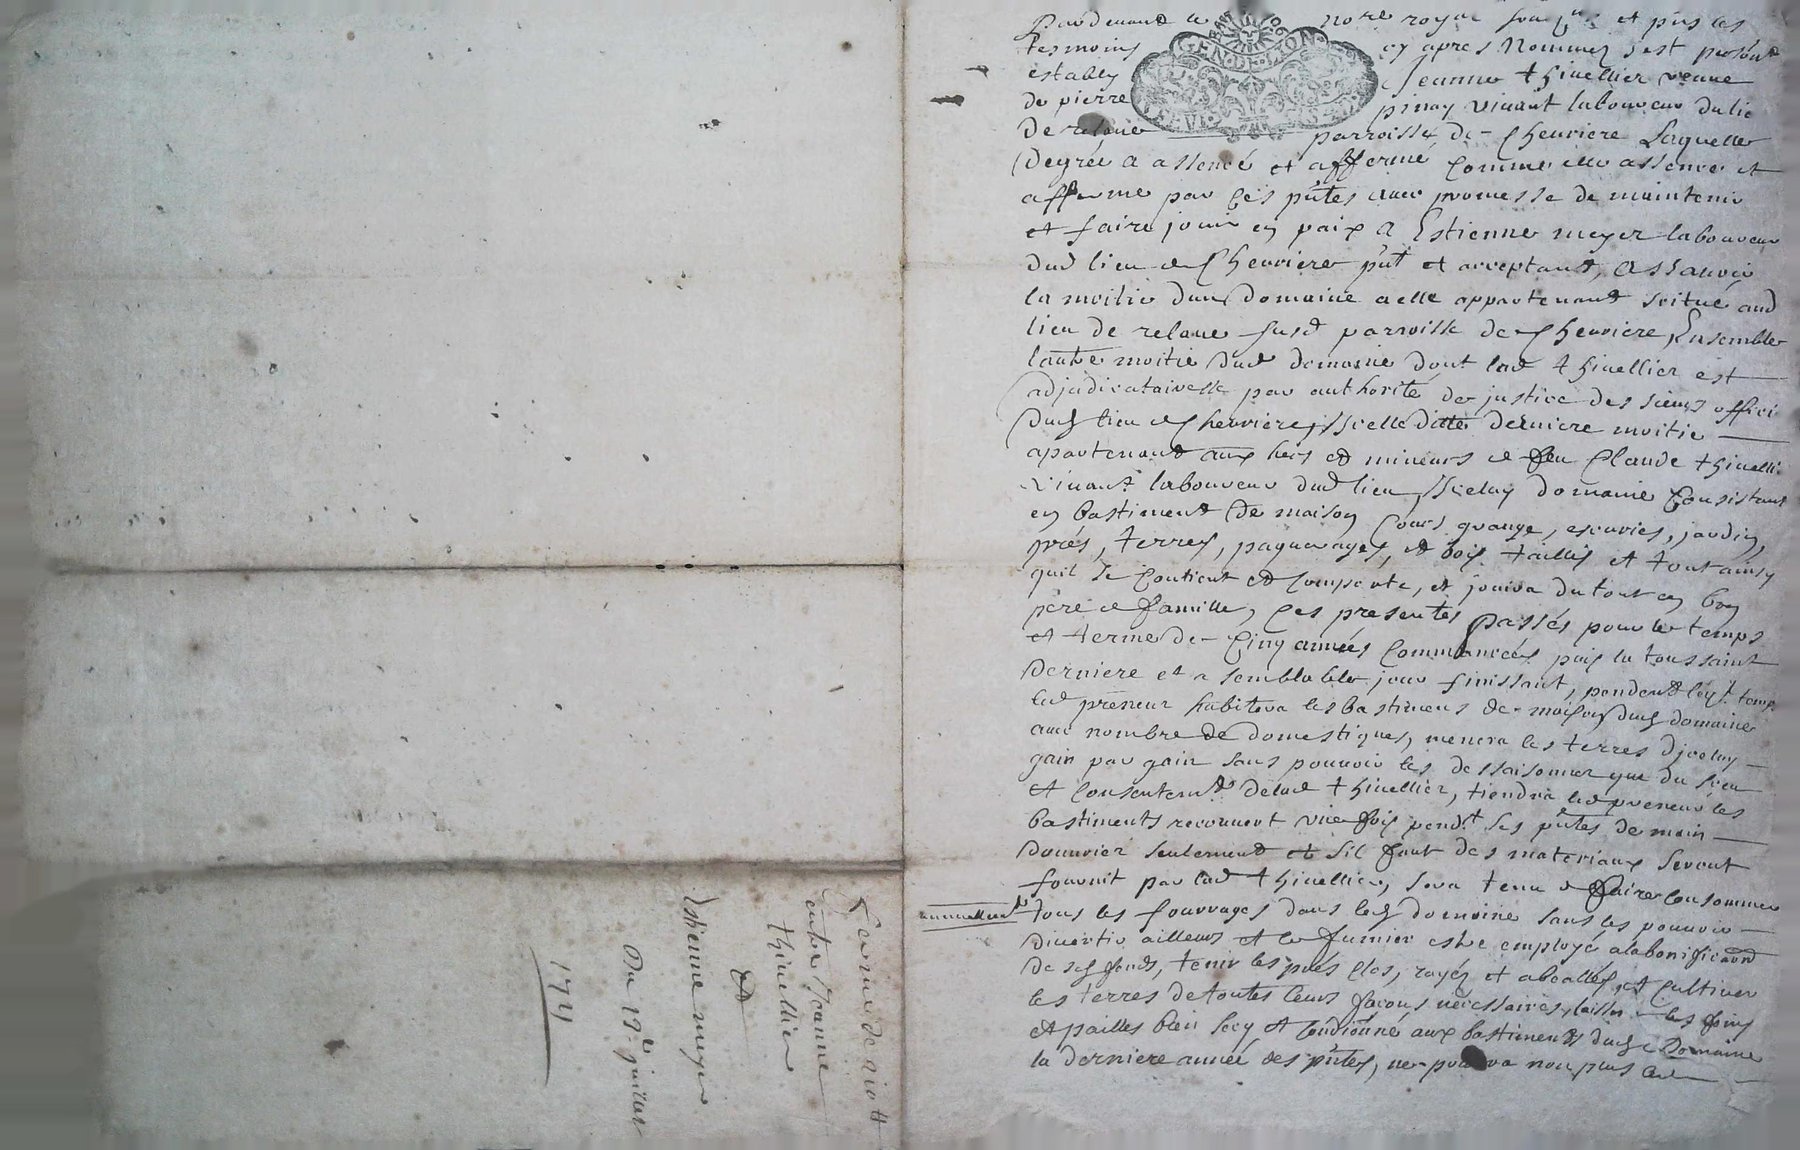 Pardevant le no.re royal et p.ns les
tesmoins cy apres Nommez s'est
establey Jeanne thivellier veuve
de pierre vivant laboureur du lie
de relave parroisse de Chevriere Laquelle
Degrée a assencé et affermé comme elle assence et
afferme par ces p.ntes avec promesse de maintenir
et faire jouir en paix a Estienne meyer laboureur
dud lieu de Chevriere p.nt et acceptant, Assavoir
la moitie dun Domaine a elle appartenant scitué aud
lieu de relave susd parroisse de Chevriere Ensemble
lautre moitie dud domaine dont lad thivellier est
adjudicatairesse par authorité de justice des sieurs offici
dud lieu de Chevriere, Icelle ditte derniere moitie
apartenant aux hers et mineurs de feu Claude thivelli
vivant laboureur dud lieu, Iceluy domaine Consistant
en bastiment de maison Cours grange, escuries, jardin,
prés, terres, paquerages, et bois taillis et tout ainsy
quil se Contient et Comporte, et jouira du tout en bon
pere de famille, Ces presentes passés pour le temps
et terme de Cinq années Commancées puis la toussaint
Derniere et a semblable jour finissant, pendent temp
led preneur habitera les bastimens de maison dud domaine
avec nombre de domestiques, menera les terres Diceluy
gain par gain sans pouvoir les dessaisonner que du sceu
et Consentem.t de lad thivellier, tiendra led preneur les
bastiments recouvert une fois pend.t les p.ntes de main
Douvrier seulement et sil faut des materiaux seront
fournit par lad thivellier, sera tenu de faire Consommer
annuellem.t tous les fourrages dans led domaine sans les pouvoir
divertir ailleurs et le fumier estre employé a la bonificaon
de sesd fonds, tenir les prés Clos, rayés et et Cultiver
les terres de toutes leurs façons necessaires, laisser les foins
et pailles bien secq et Conditionné aux bastiments dud Domaine
la derniere année des p.ntes, ne pourra non plus led
Ferme de
entre Jeanne
thivellier
Et
Estienne meyer
Du 13.e
1721